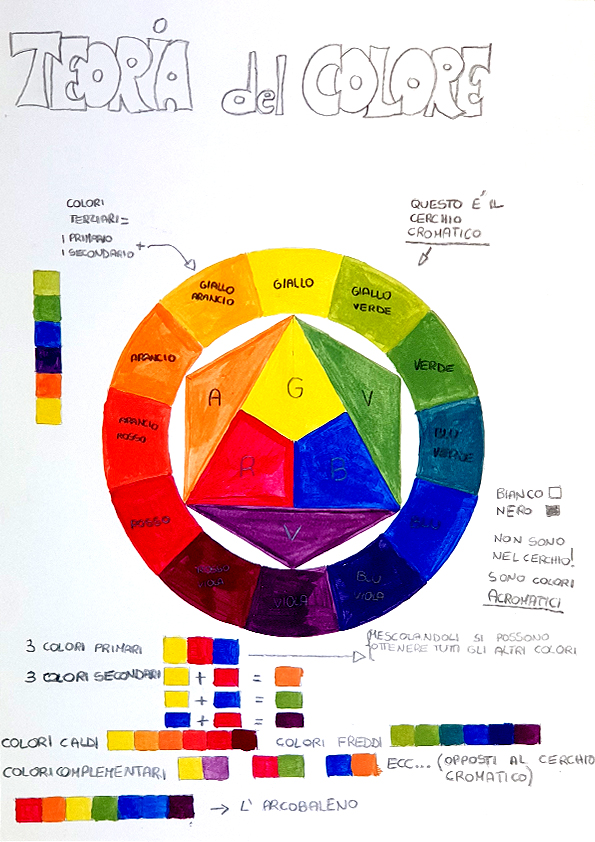 TEORIA del COLORE
COLORI
TERZIARI =
1 PRIMARIO +
1 SECONDARIO
QUESTO E' IL
CERCHIO
CROMATICO
GIALLO
GIALLO
VERDE
VERDE
BLU
VERDE
BLU
BLU
VIOLA
VIOLA
ROSSO
VIOLA
ROSSO
ARANCIO
ROSSO
ARANCIO
GIALLO
ARANCIO
A
G
V
R
B
V
BIANCO
NERO
NON SONO
NEL CERCHIO!
SONO COLORI
ACROMATICI
3 COLORI PRIMARI
MESCOLANDOLI SI POSSONO
OTTENERE TUTTI GLI ALTRI COLORI
3 COLORI SECONDARI
+ =
+ =
+ =
COLORI CALDI
COLORI FREDDI
COLORI COMPLEMENTARI
ECC... (OPPOSTI AL CERCHIO
CROMATICO)
→ L' ARCOBALENO